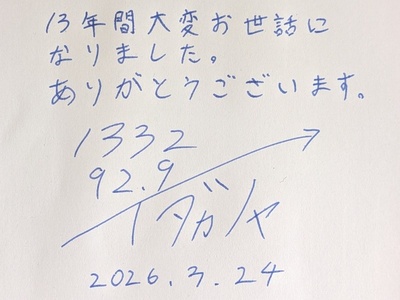 13年間大変お世話に
なりました。
ありがとうございます。
1332
92.9
イタガキ
2026.3.24